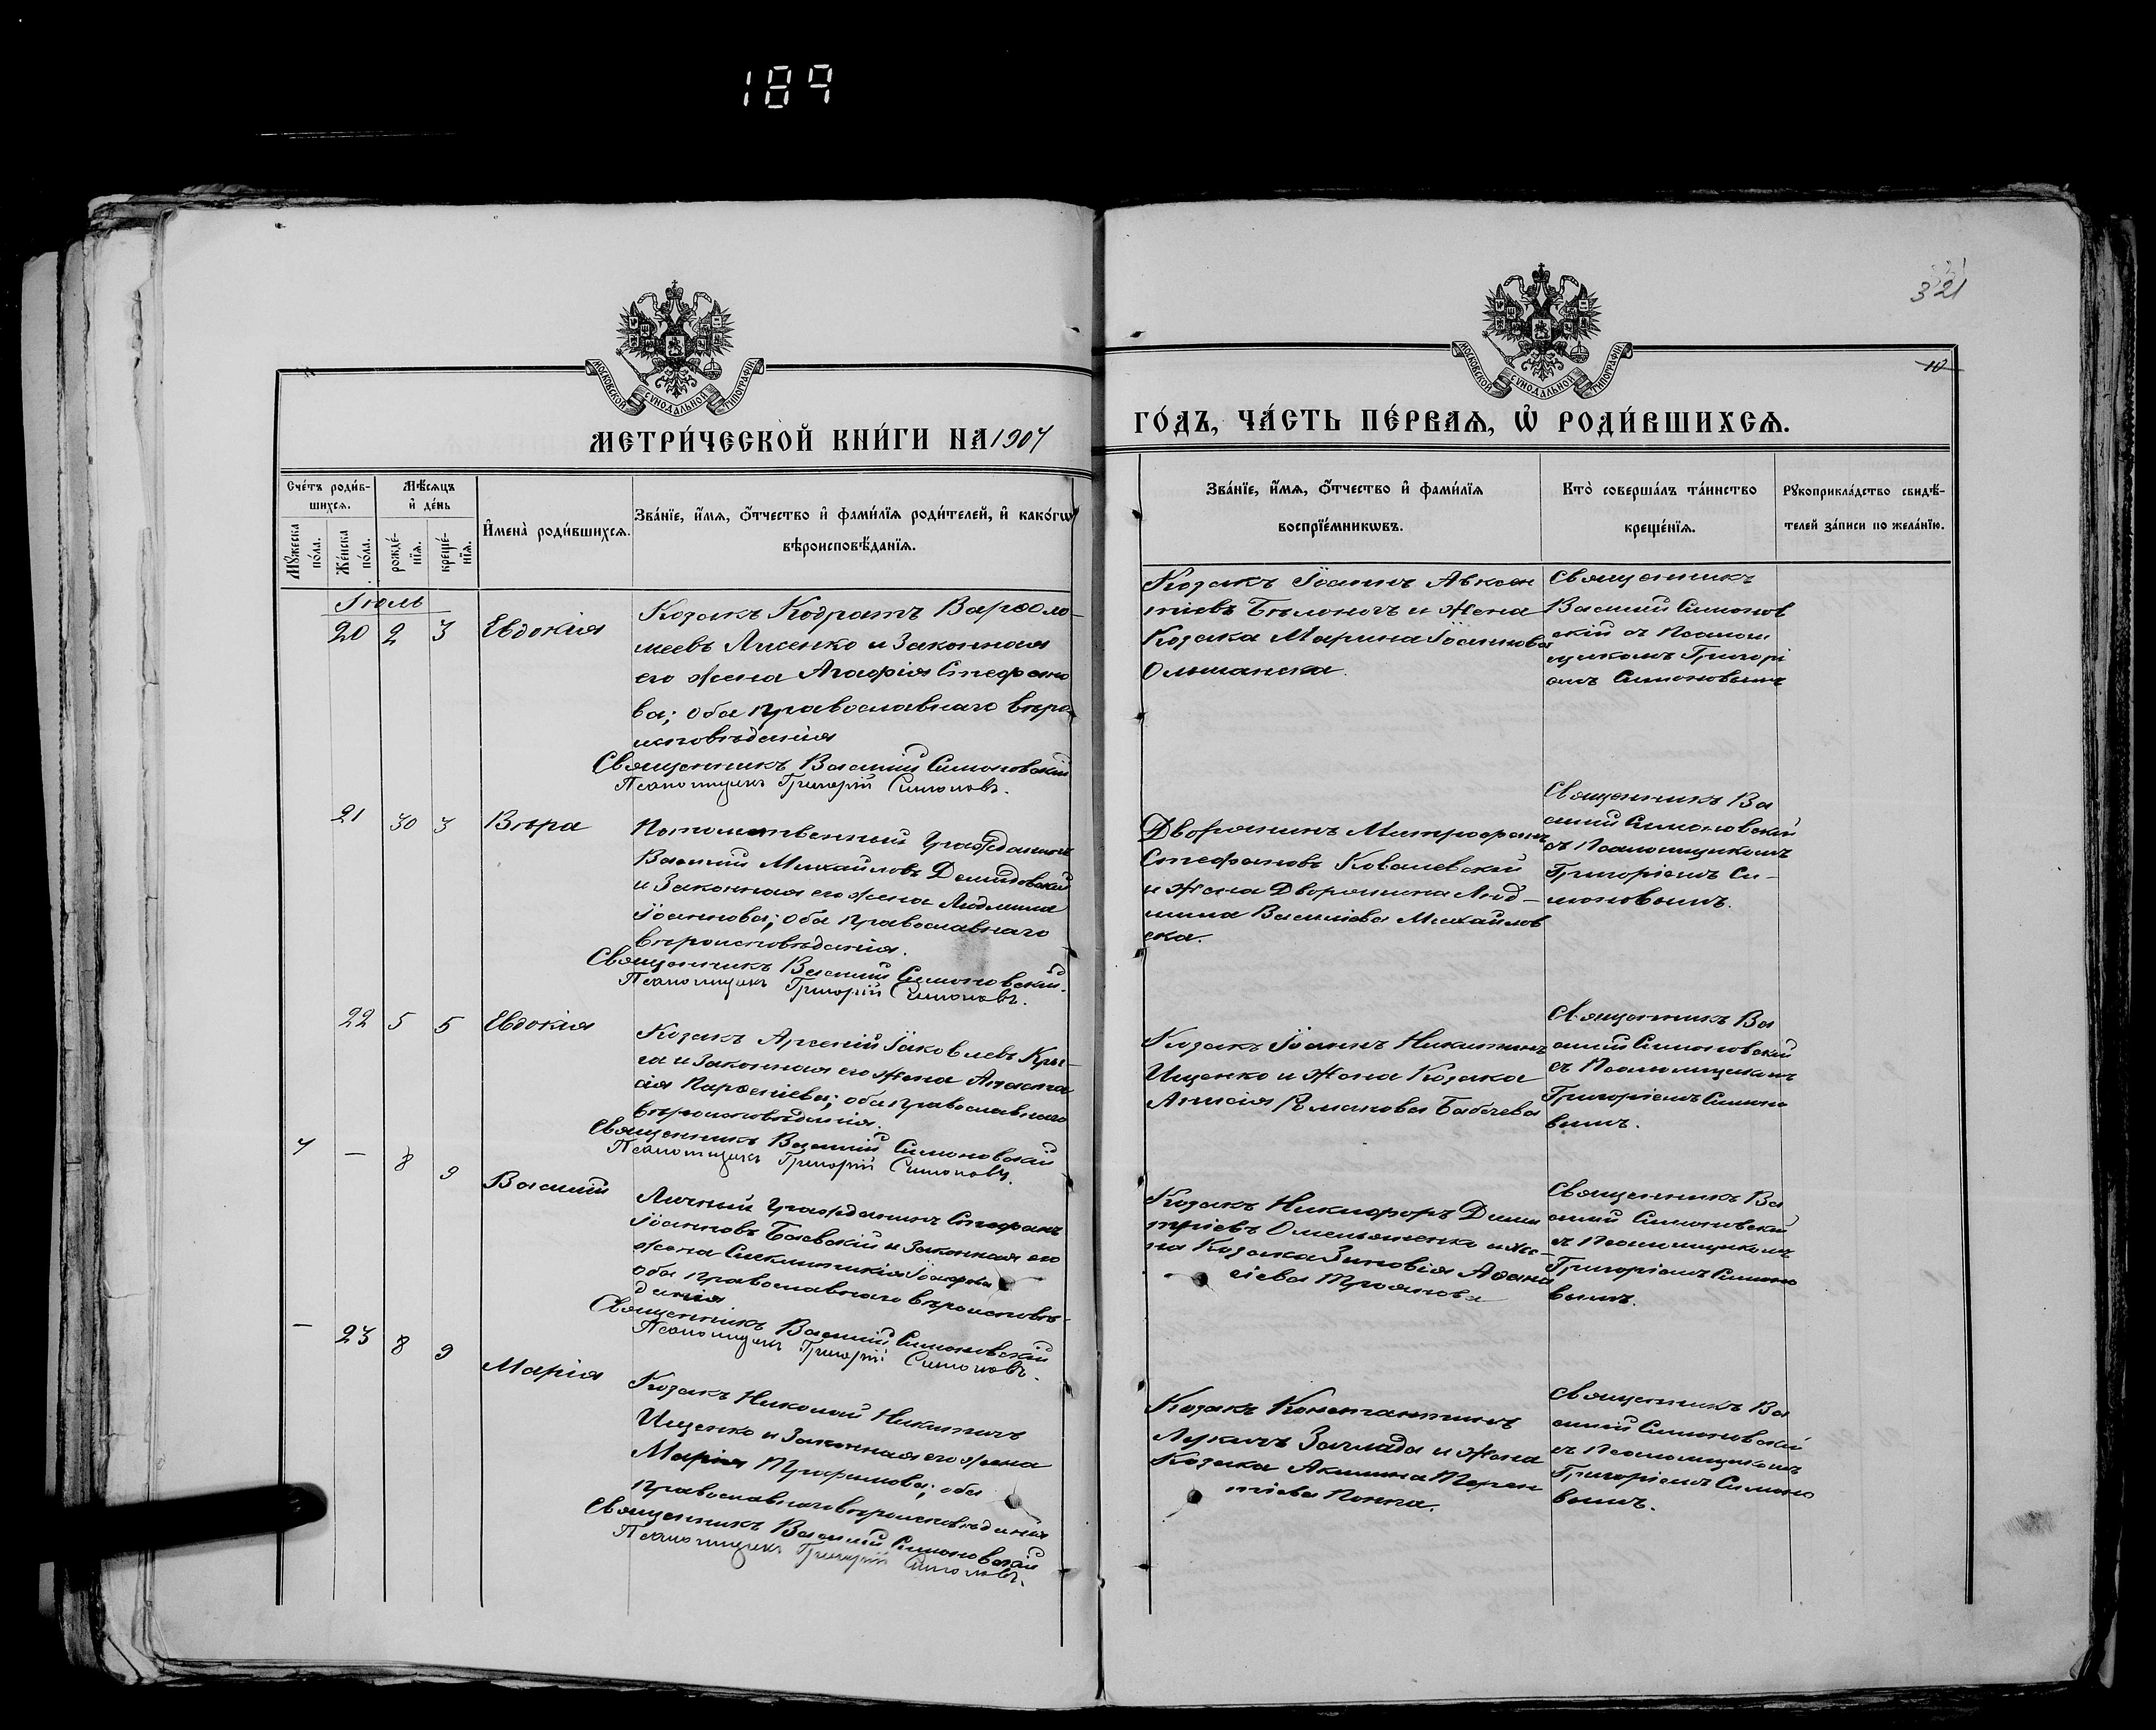 189
321
10
МОСКОВСКОЙ СѴНОДАЛЬНОЙ ТИПОГРАФІИ
МОСКОВСКОЙ СѴНОДАЛЬНОЙ ТИПОГРАФІИ
МЕТРИ́ЧЕСКОЙ КНИ́ГИ НА 1907
ГО́ДЪ, ЧА́СТЬ ПЕ́РВАѦ, Ѡ҆ РОДИ́ВШИХСѦ.
Сче́тъ роди́в-
шихсѧ.
Мꙋ́жеска по́ла.
Же́нска по́ла.
Мѣ́сѧцъ
и҆ де́нь
рожде́-
нїѧ.
креще́-
нїѧ.
И҆мена̀ роди́вшихсѧ.
Зва́нїе, и҆́мѧ, ѻ҆́тчество и҆ фами́лїѧ роди́телей, и҆ како́гѡ
вѣроисповѣ́данїѧ.
Зва́нїе, и҆́мѧ, ѻ҆́тчество и҆ фами́лїѧ
воспрїе́мникѡвъ.
Кто̀ соверша́лъ та́инство
креще́нїѧ.
Рꙋкоприкла́дство свидѣ́-
телей за́писи по жела́нїю.
Іюль
20 2 3 Евдокія
Козакъ Кодратъ Варѳоло-
меевъ Лисенко и законная
его жена Агафія Стефано
ва; оба православнаго вѣро
исповѣданія
Священникъ Василій Симоновскій
Псаломщикъ Григорій Симоновъ.
Козакъ Іоаннъ Авксен
тіевъ Бѣлоногъ и жена
Козака Марина Іоаннова
Ольшанска.
Священникъ
Василій Симонов
скій съ Псалом
щикомъ Григорі
емъ Симоновымъ
21 30 3 Вѣра
Потомственный Гражданинъ
Василій Михайловъ Демидовскій
и законная его жена Людмила
Іоаннова; оба православнаго
вѣроисповѣданія.
Священникъ Василій Симоновскій.
Псаломщикъ Григорій Симоновъ.
Дворянинъ Митрофанъ
Стефановъ Ковалевскій
и жена Дворянина Люд-
мила Василіева Михайлов
ска.
Священникъ Ва
силій Симоновскій
съ Псаломщикомъ
Григоріемъ Си-
моновымъ.
22 5 5 Евдокія
Козакъ Арсеній Іаковлевъ Кры-
са и законная его жена Анаста
сія Парѳеніева; оба православнаго
вѣроисповѣданія.
Священникъ Василій Симоновскій
Псаломщикъ Григорій Симоновъ.
Козакъ Іоаннъ Никитинъ
Ищенко и жена Козака
Анисія Романова Бабачева
Священникъ Ва
силій Симоновскій
съ Псаломщикомъ
Григоріемъ Симоно
вымъ.
7 — 8 9 Василій
Личный Гражданинъ Стефанъ
Іоанновъ Баевскій и законная его
жена Синклитикія Іосифова
оба православнаго вѣроисповѣ-
данія
Священникъ Василій Симоновскій
Псаломщикъ Григорій Симоновъ.
Козакъ Никифоръ Дими
тріевъ Омельяненко и же-
на Козака Зиновія Аѳана
сіева Троянова
Священникъ Ва
силій Симоновскій
съ Псаломщикомъ
Григоріемъ Симоно
вымъ.
— 23 8 9 Марія
Козакъ Николай Никитинъ
Ищенко и законная его жена
Марія Трофимова; оба
православнаго вѣроисповѣданія
Священникъ Василій Симоновскій
Псаломщикъ Григорій Симоновъ.
Козакъ Константинъ
Лукичъ Заглада и жена
Козака Акилина Терен
тіева Попка.
Священникъ Ва
силій Симоновскій
съ Псаломщикомъ
Григоріемъ Симоно
вымъ.